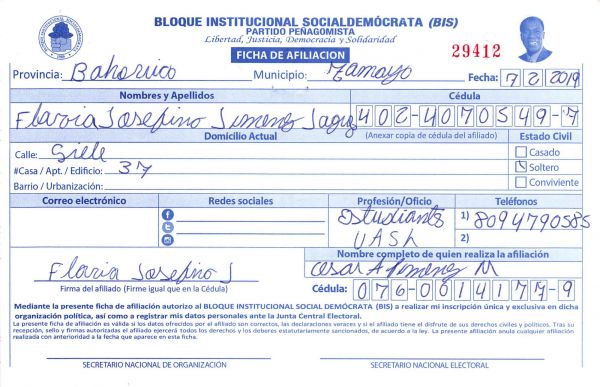 BLOQUE INSTITUCIONAL SOCIALDEMÓCRATA (BIS)
PARTIDO PEÑAGOMISTA
Libertad, Justicia, Democracia y Solidaridad
FICHA DE AFILIACION
29412
Provincia: Bahoruco Municipio: Tamayo Fecha: 7 2 2019
Nombres y Apellidos Cédula
Flavia Josefino Jimenez 402-4070549-7
Domicilio Actual (Anexar copia de cédula del afiliado) Estado Civil
Calle: Siele
Casado
#Casa / Apt. / Edificio: 37
Soltero
Barrio / Urbanización:
Conviviente
Correo electrónico Redes sociales Profesión/Oficio Teléfonos
Estudiante 1) 8094790585
UASD 2)
Nombre completo de quien realiza la afiliación
Flavia Josefino J Cesar A Jimenez M
Firma del afiliado (Firme igual que en la Cédula) Cédula: 076-0014177-9
Mediante la presente ficha de afiliación autorizo al BLOQUE INSTITUCIONAL SOCIAL DEMÓCRATA (BIS) a realizar mi inscripción única y exclusiva en dicha
organización política, así como a registrar mis datos personales ante la Junta Central Electoral.
La presente ficha de afiliación es válida si los datos ofrecidos por el afiliado son correctos, las declaraciones veraces y si el afiliado tiene el disfrute de sus derechos civiles y políticos. Tras su
recepción, sello y firmas autorizadas el afiliado ejercerá todos los derechos y los deberes estatutariamente sancionados, de acuerdo a la ley. La presente afiliación anula cualquier afiliación
realizada con anterioridad a la fecha que aparece en esta ficha.
SECRETARIO NACIONAL DE ORGANIZACIÓN SECRETARIO NACIONAL ELECTORAL